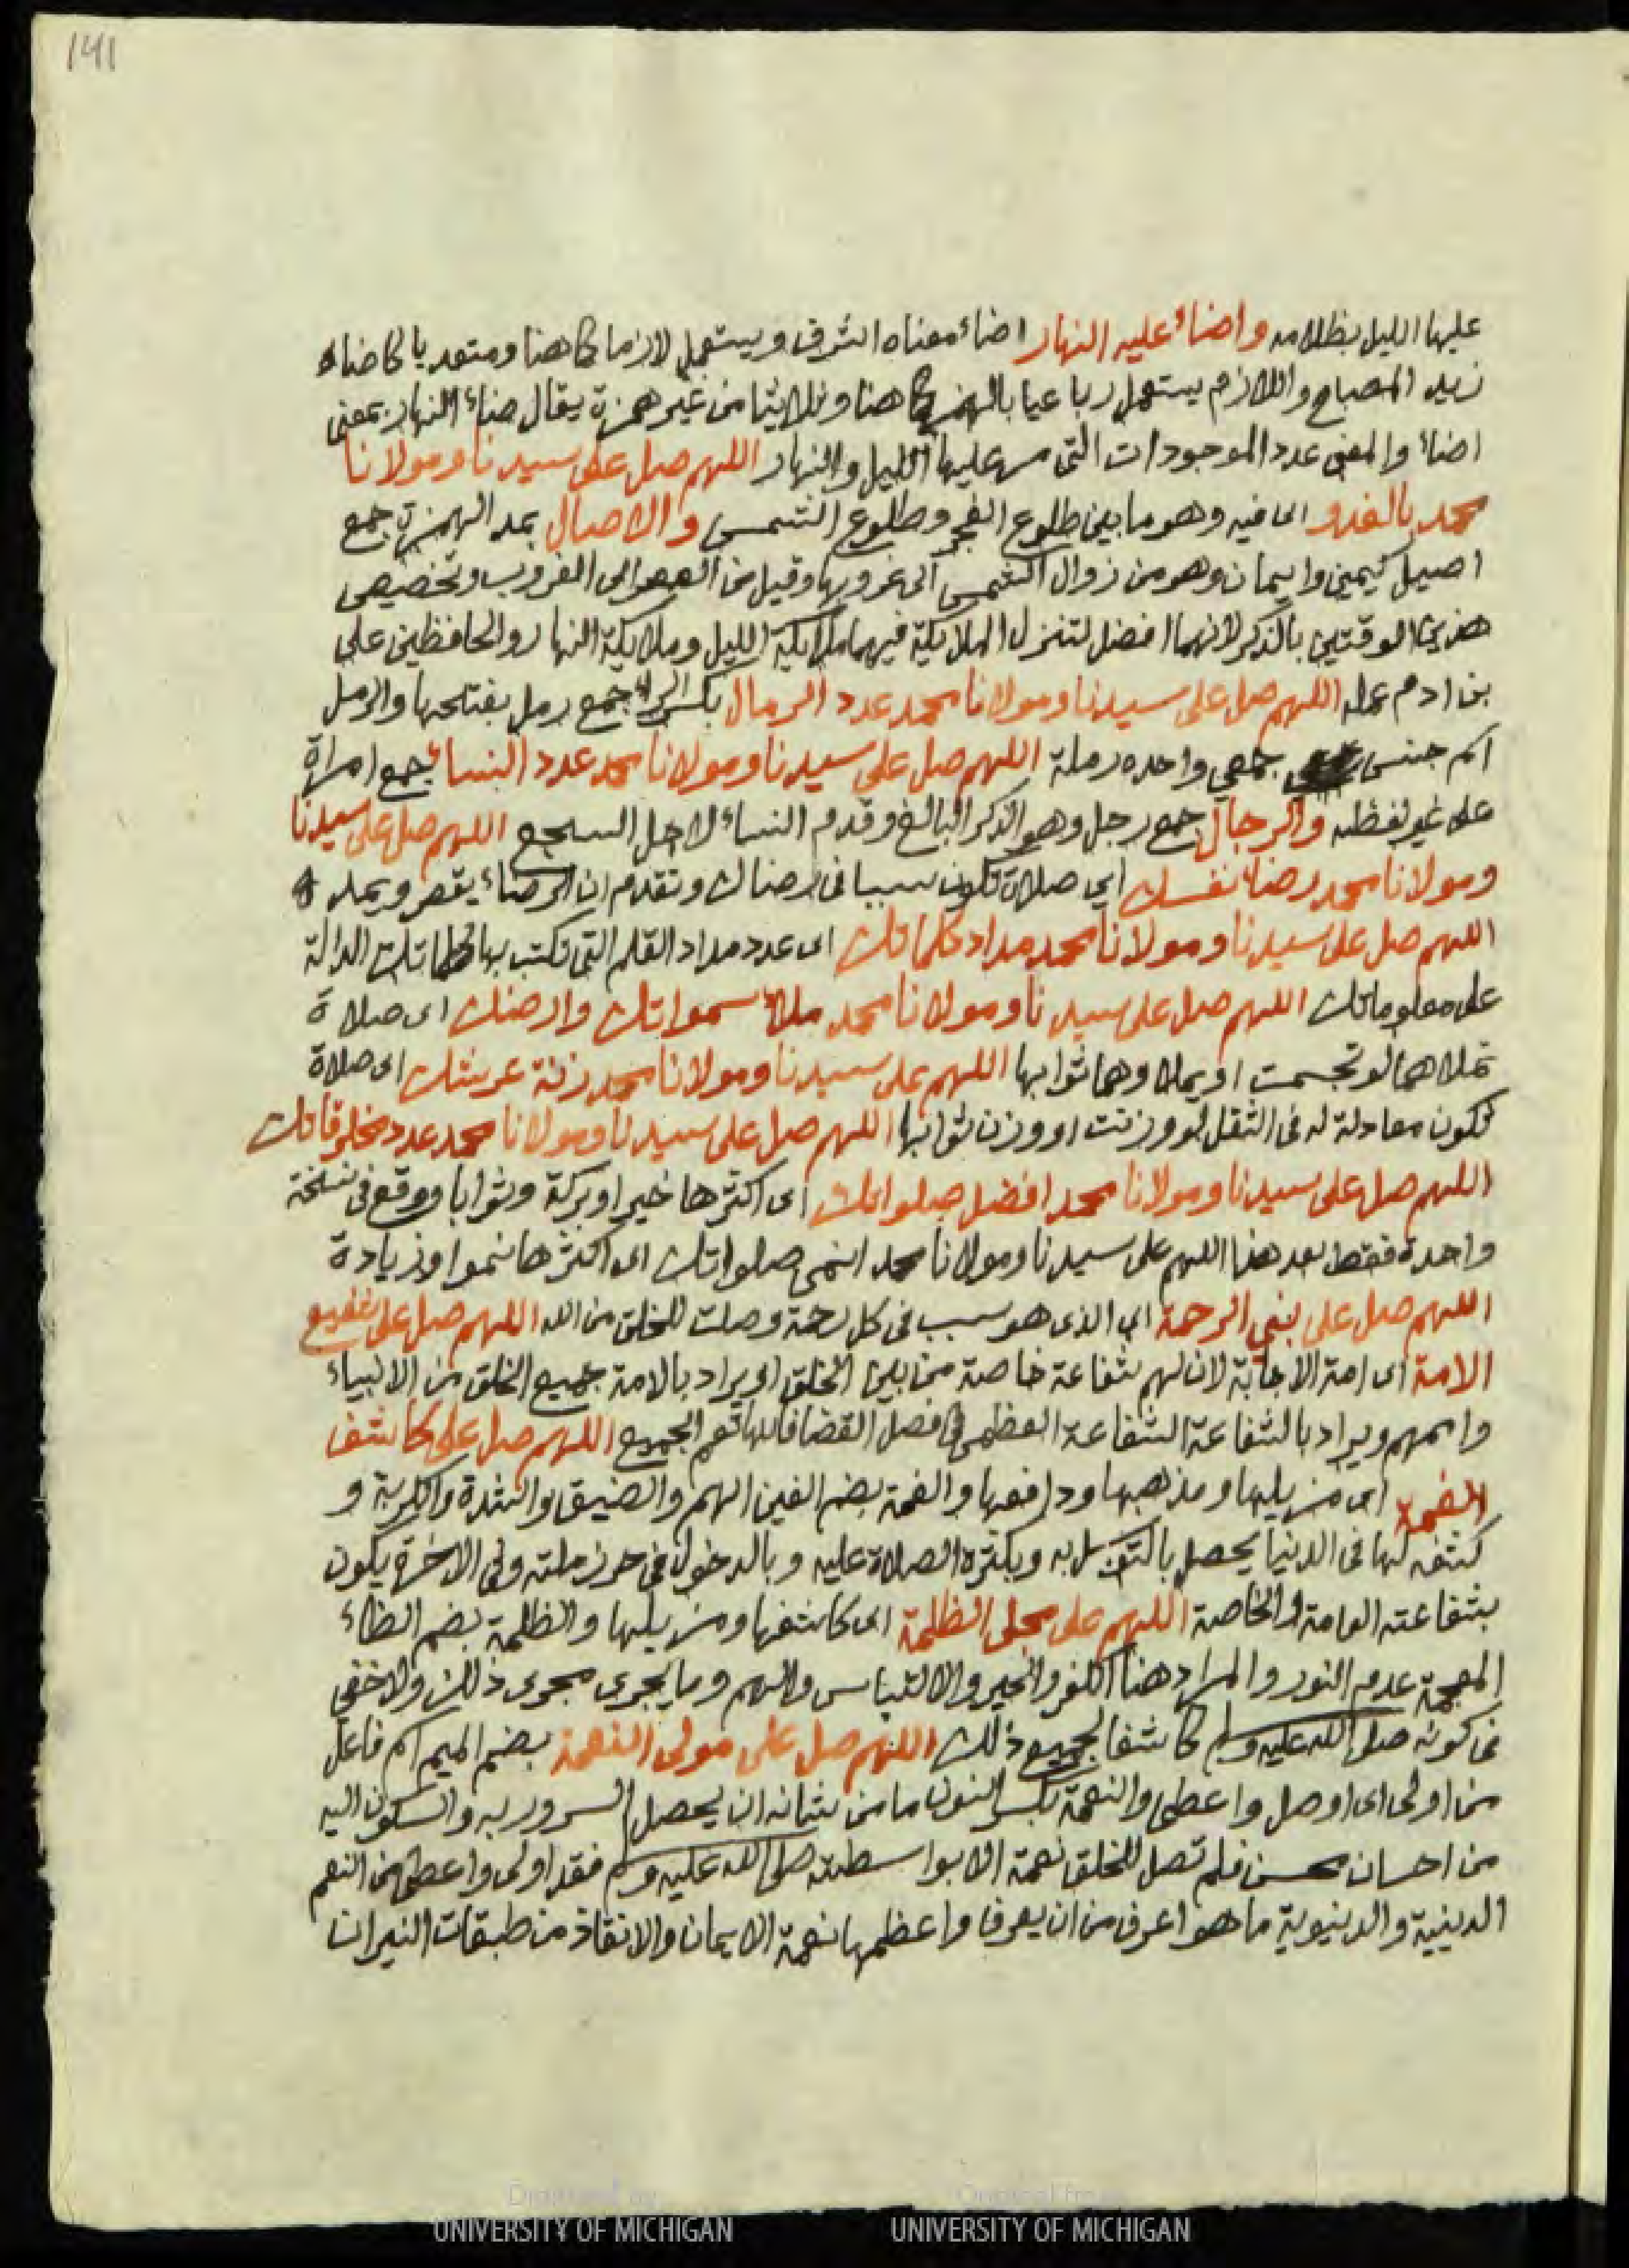 141
عليها الليل بظلامه واضاء عليه النهار اضاء معناه اشرق ويستعمل لازما كما هنا ومتعديا كاضاء
زيد المصباح واللازم يستعمل رباعيا بالهمز كما هنا وثلاثيا من غير همزة يقال ضاء النهار بمعنى
اضاء والمعنى عدد الموجودات التي مر عليها الليل والنهار اللهم صل على سيدنا ومولانا
محمد بالغدو اى فيه وهو ما بين طلوع الفجر وطلوع الشمس والاصال بمد الهمزة جمع
اصيل كيمين وايمان وهو من زوال الشمس الى غروبها وقيل من العصر الى الغروب وتخصيص
هذين الوقتين بالذكر لانهما افضل لتنزل الملايكة فيهما ملايكة الليل وملايكة النهار والحافظين على
بن ادم عمله اللهم صل على سيدنا ومولانا محمد عدد الرمال بكسر الراء جمع رمل بفتحها والرمل
اسم جنس جمعي واحده رملة اللهم صل على سيدنا ومولانا محمد عدد النساء جمع امراة
على غير لفظه والرجال جمع رجل وهو الذكر البالغ وقدم النساء لاجل السجع اللهم صل على سيدنا
ومولانا محمد رضاء نفسك اي صلاة تكون سببا في رضاك وتقدم ان الرضاء يقصر ويمد
اللهم صل على سيدنا ومولانا محمد مداد كلماتك اى عدد مداد القلم التي تكتب بها كلماتك الدالة
على معلوماتك اللهم صل على سيدنا ومولانا محمد ملأ سمواتك وارضك اى صلاة
تملاهما لو تجسمت او يملاوهما ثوابها اللهم على سيدنا ومولانا محمد زنة عرشك اى صلاة
تكون معادلة له في الثقل لو وزنت او وزن ثوابها اللهم صل على سيدنا ومولانا محمد عدد مخلوقاتك
اللهم صل على سيدنا ومولانا محمد افضل صلواتك اى اكثرها خيرا وبركة وثوابا ووقع في نسخة
واحدة فقط بعد هذا اللهم على سيدنا ومولانا محمد انمى صلواتك اى اكثرها نموا وزيادة
اللهم صل على نبي الرحمة اي الذى هو سبب في كل رحمة وصلت للخلق من الله اللهم صل على شفيع
الامة اى امة الاجابة لان لهم شفاعة خاصة من بين الخلق او يراد بالامة جميع الخلق من الانبياء
واممهم ويراد بالشفاعة الشفاعة العظمى في فصل القضا فانها تعم الجميع اللهم صل على كاشف
الغمة اى مزيلها ومذهبها ودافعها والغمة بضم الغين الهم والضيق والشدة والكربة و
كشفه لها في الدنيا يحصل بالتوسل به وبكثرة الصلاة عليه وبالدخول في حرز ملته وفي الاخرة يكون
بشفاعته العامة والخاصة اللهم على مجلى الظلمة اى كاشفها ومزيلها والظلمة بضم الظاء
المعجمة عدم النور والمراد هنا الكفر والحير والالتباس والهم وما يجرى مجرى ذلك ولا خفى
في كونه صلى الله عليه وسلم كاشفا لجميع ذلك اللهم صل على مولى النعمة بضم الميم اسم فاعل
من اولى اى اوصل واعطى والنعمة بكسر النون ما من شانه ان يحصل السرور به والسكون اليه
من احسان محسن فلم تصل للخلق نعمة الا بواسطته صلى الله عليه وسلم فقد اولى واعطى من النعم
الدينية والدنيوية ما هو اعرف من ان يعرف واعظمها نعمة الايمان والانقاذ من طبقات النيران
Digitized by
UNIVERSITY OF MICHIGAN
Original from
UNIVERSITY OF MICHIGAN